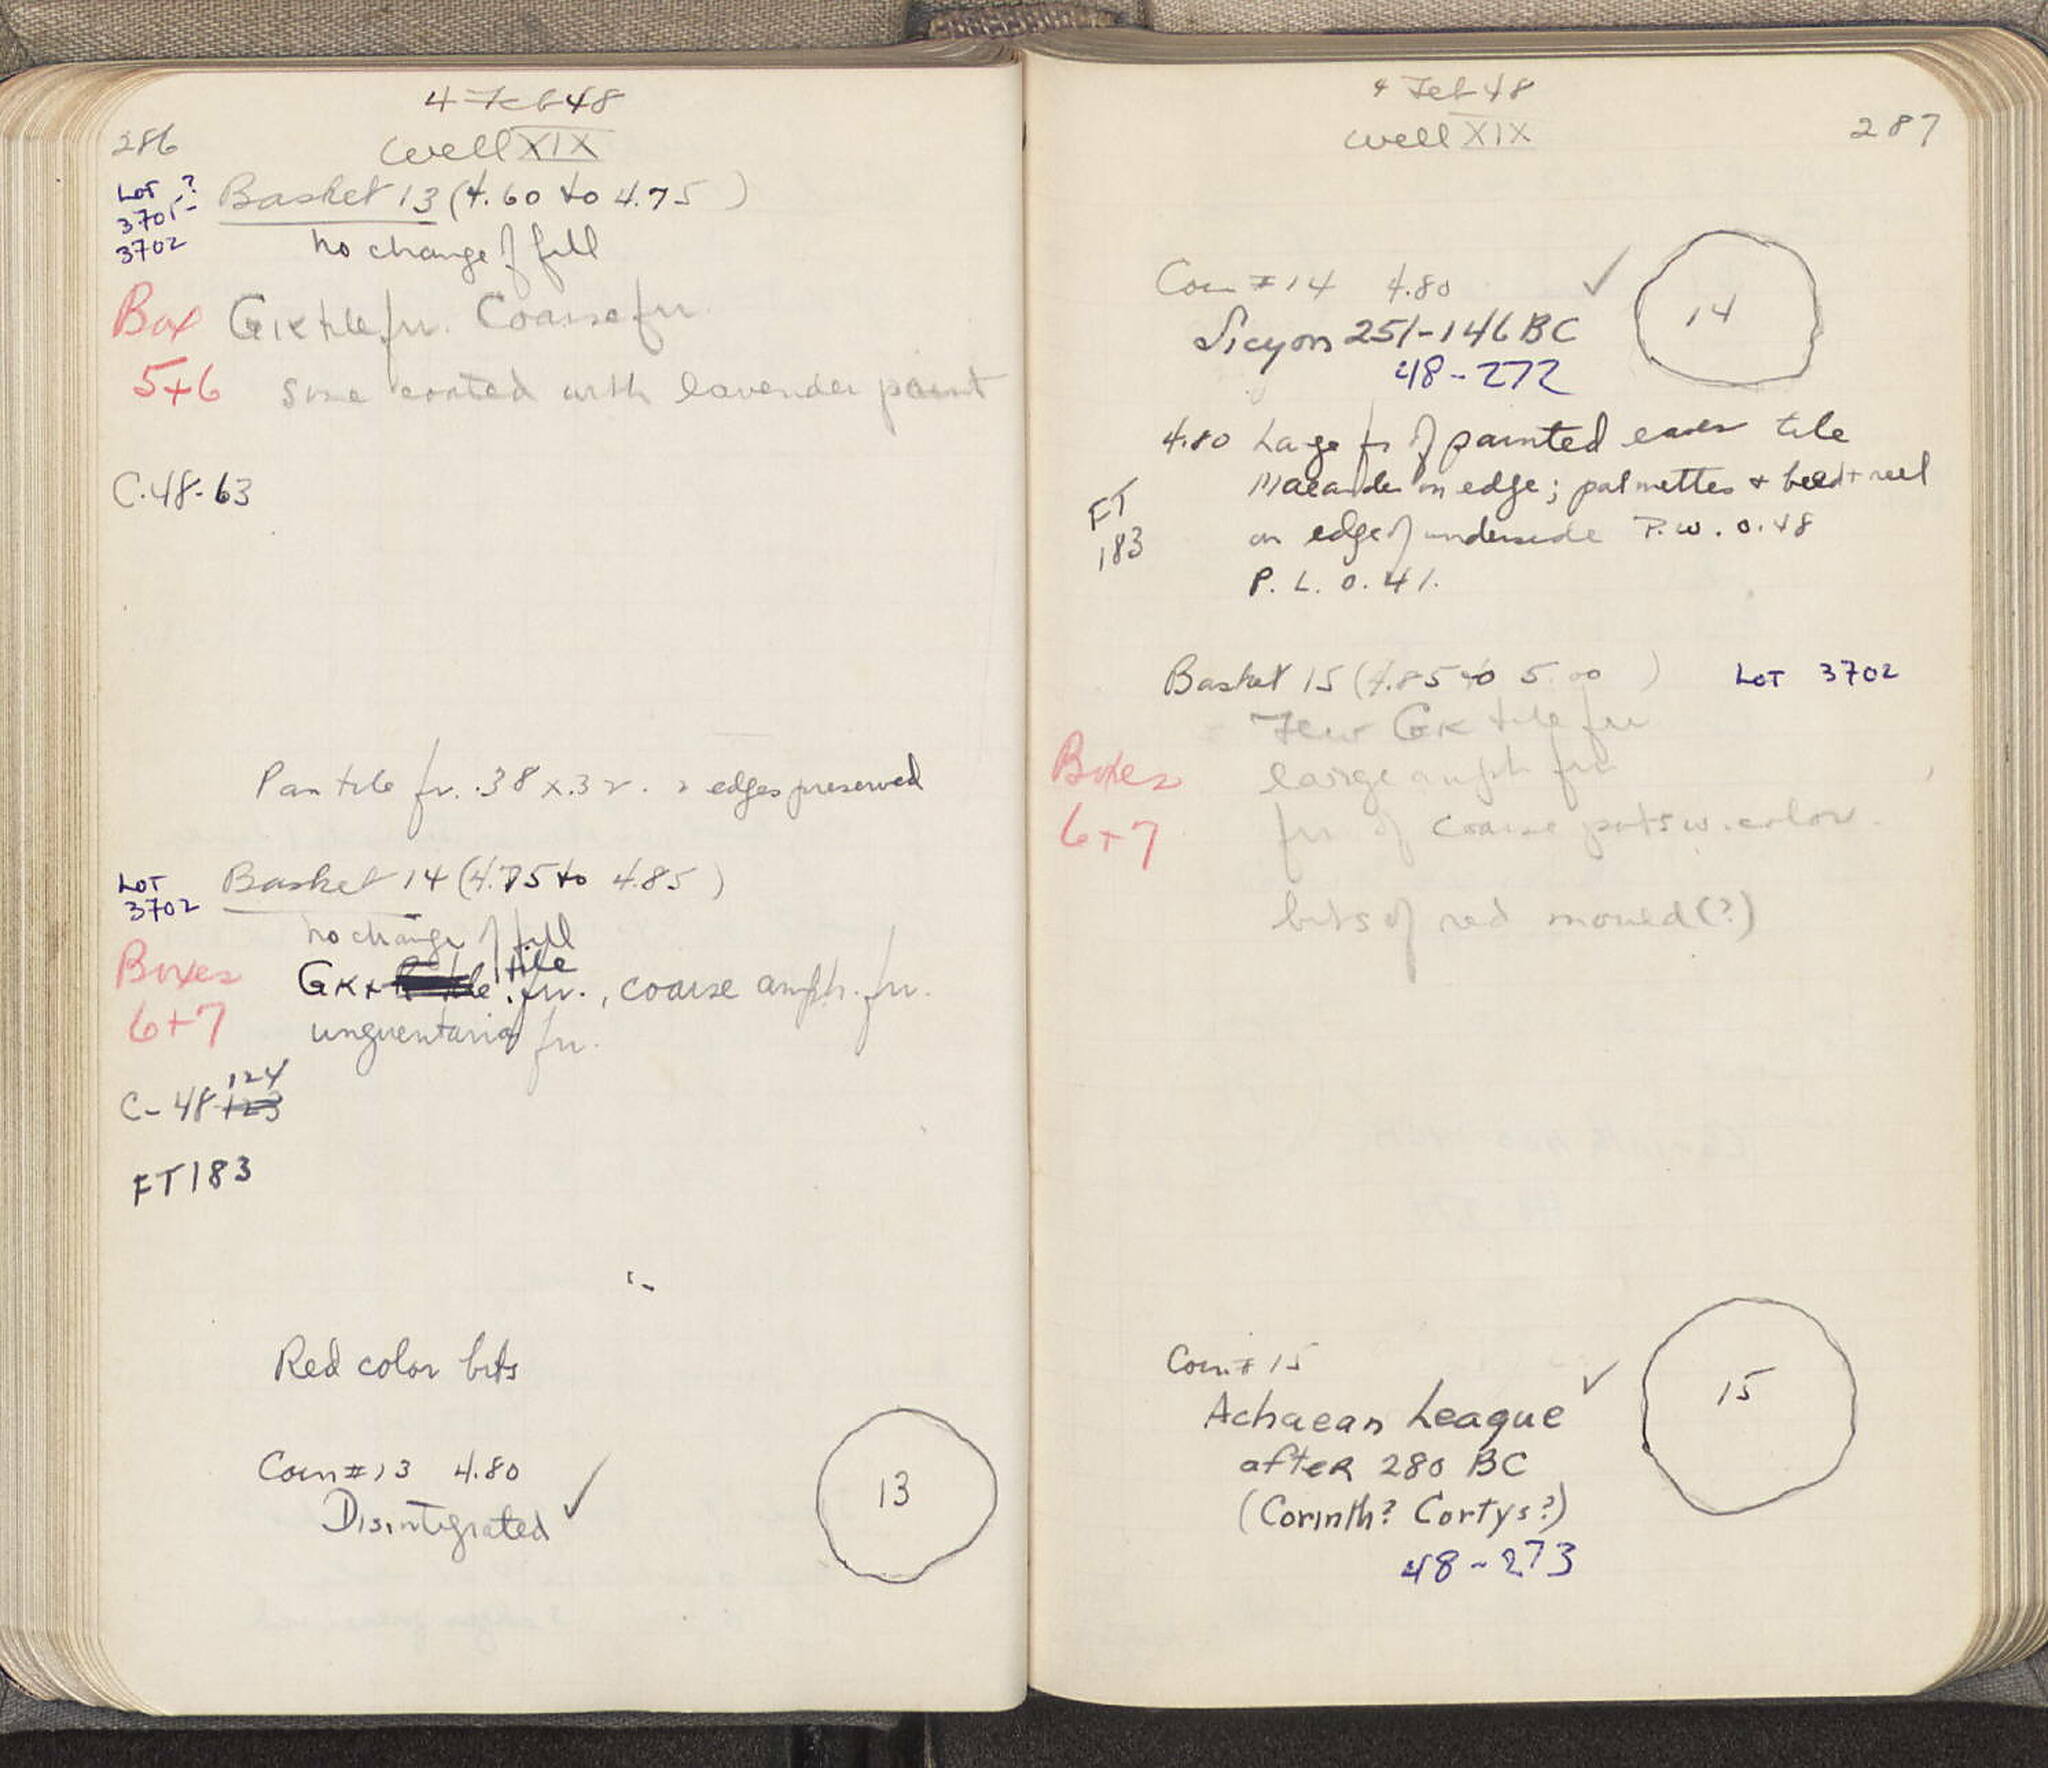 4 Feb 48
286
Well XIX
LOT ?
3701-
3702
Basket 13 (4.60 to 4.75 )
no change of fill
Box
5+6
Gk tile frr. Coarse frr.
Some coated with lavender paint
C.48-63
Pan tile fr. .38 x .32. 2 edges preserved
LOT
3702
Basket 14 (4.75 to 4.85 )
no change of fill
Boxes
6+7
Gk + tile frr., coarse amph. frr.
unguentaria frr.
C-48-123 124
FT 183
Red color bits
Coin #13 4.80
Disintegrated ✓
13
4 Feb 48
Well XIX
287
Coin #14 4.80 ✓
14
Sicyon 251-146 BC
48-272
4.80 Large fr of painted eaves tile
Maeander on edge; palmettes + bead + reel
on edge of underside P.W. 0.48
P. L. 0.41.
FT
183
Basket 15 (4.85 to 5.00 )
LOT 3702
Few Gk tile frr
large amph frr
frr of coarse pots w. color.
Boxes
6+7
bits of red (?)
Coin #15
15
Achaean League ✓
after 280 BC
(Corinth? Cortys?)
48-273